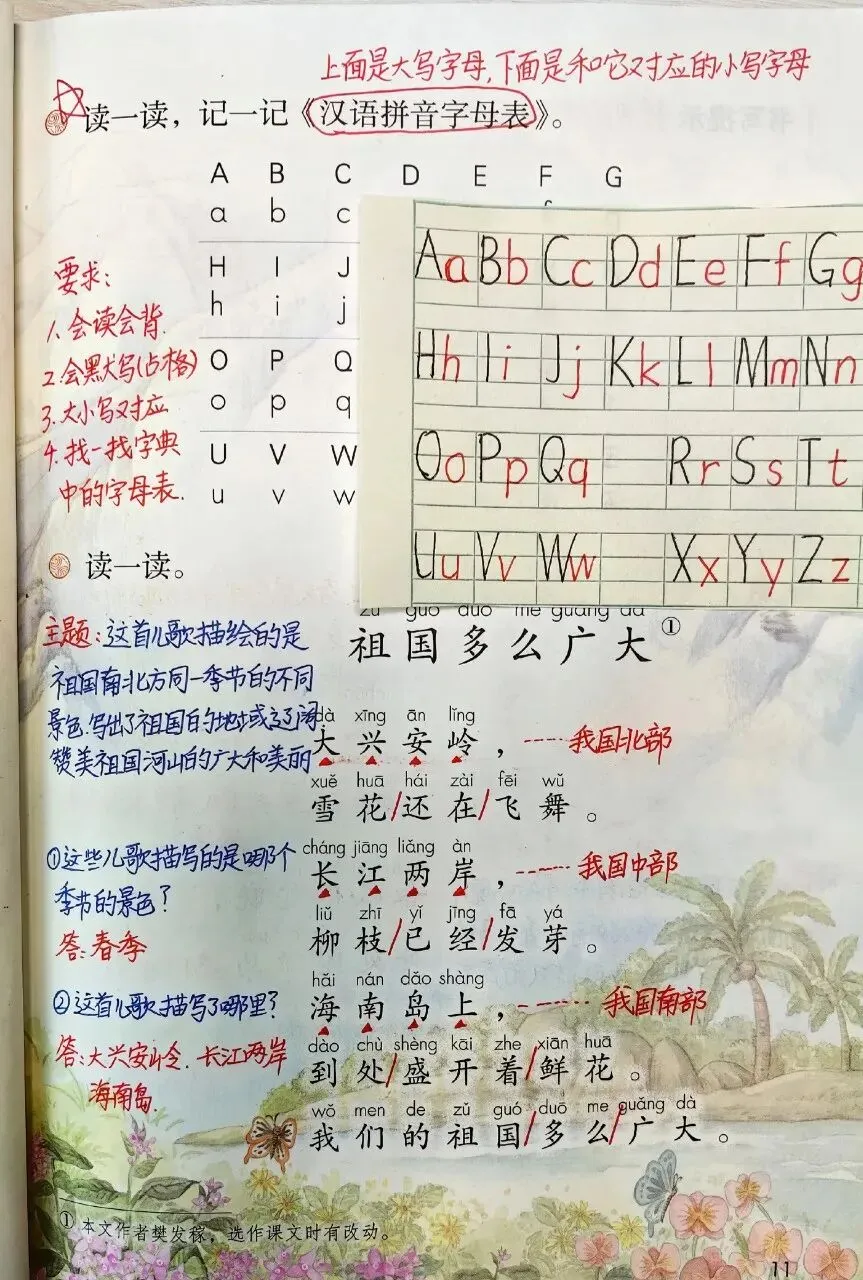 上面是大写字母,下面是和它对应的小写字母
读一读，记一记《汉语拼音字母表》。
A B C D E F G
a b c
H I J
h i j
O P Q
o p q
U V W
u v w
Aa Bb Cc Dd Ee Ff Gg
Hh Ii Jj Kk Ll Mm Nn
Oo Pp Qq Rr Ss Tt
Uu Vv Ww Xx Yy Zz
要求:
1、会读会背.
2.会默写(占格)
3.大小写对应
4.找一找字典
中的字母表.
读一读。
zǔ guó duō me guǎng dà
祖国多么广大①
主题:这首儿歌描绘的是
祖国南北方同一季节的不同
景色.写出了祖国的地域辽阔
赞美祖国河山的广大和美丽
dà xīng ān lǐng
大兴安岭， 我国北部
xuě huā hái zài fēi wǔ
雪花/还在/飞舞。
①这些儿歌描写的是哪个
季节的景色?
答:春季
cháng jiāng liǎng àn
长江两岸， 我国中部
liǔ zhī yǐ jīng fā yá
柳枝/已经/发芽。
②这首儿歌描写了哪里?
答:大兴安岭.长江两岸
海南岛.
hǎi nán dǎo shàng
海南岛上， 我国南部
dào chù shèng kāi zhe xiān huā
到处/盛开着/鲜花。
wǒ men de zǔ guó duō me guǎng dà
我们的祖国/多么/广大。
① 本文作者樊发稼，选作课文时有改动。
11